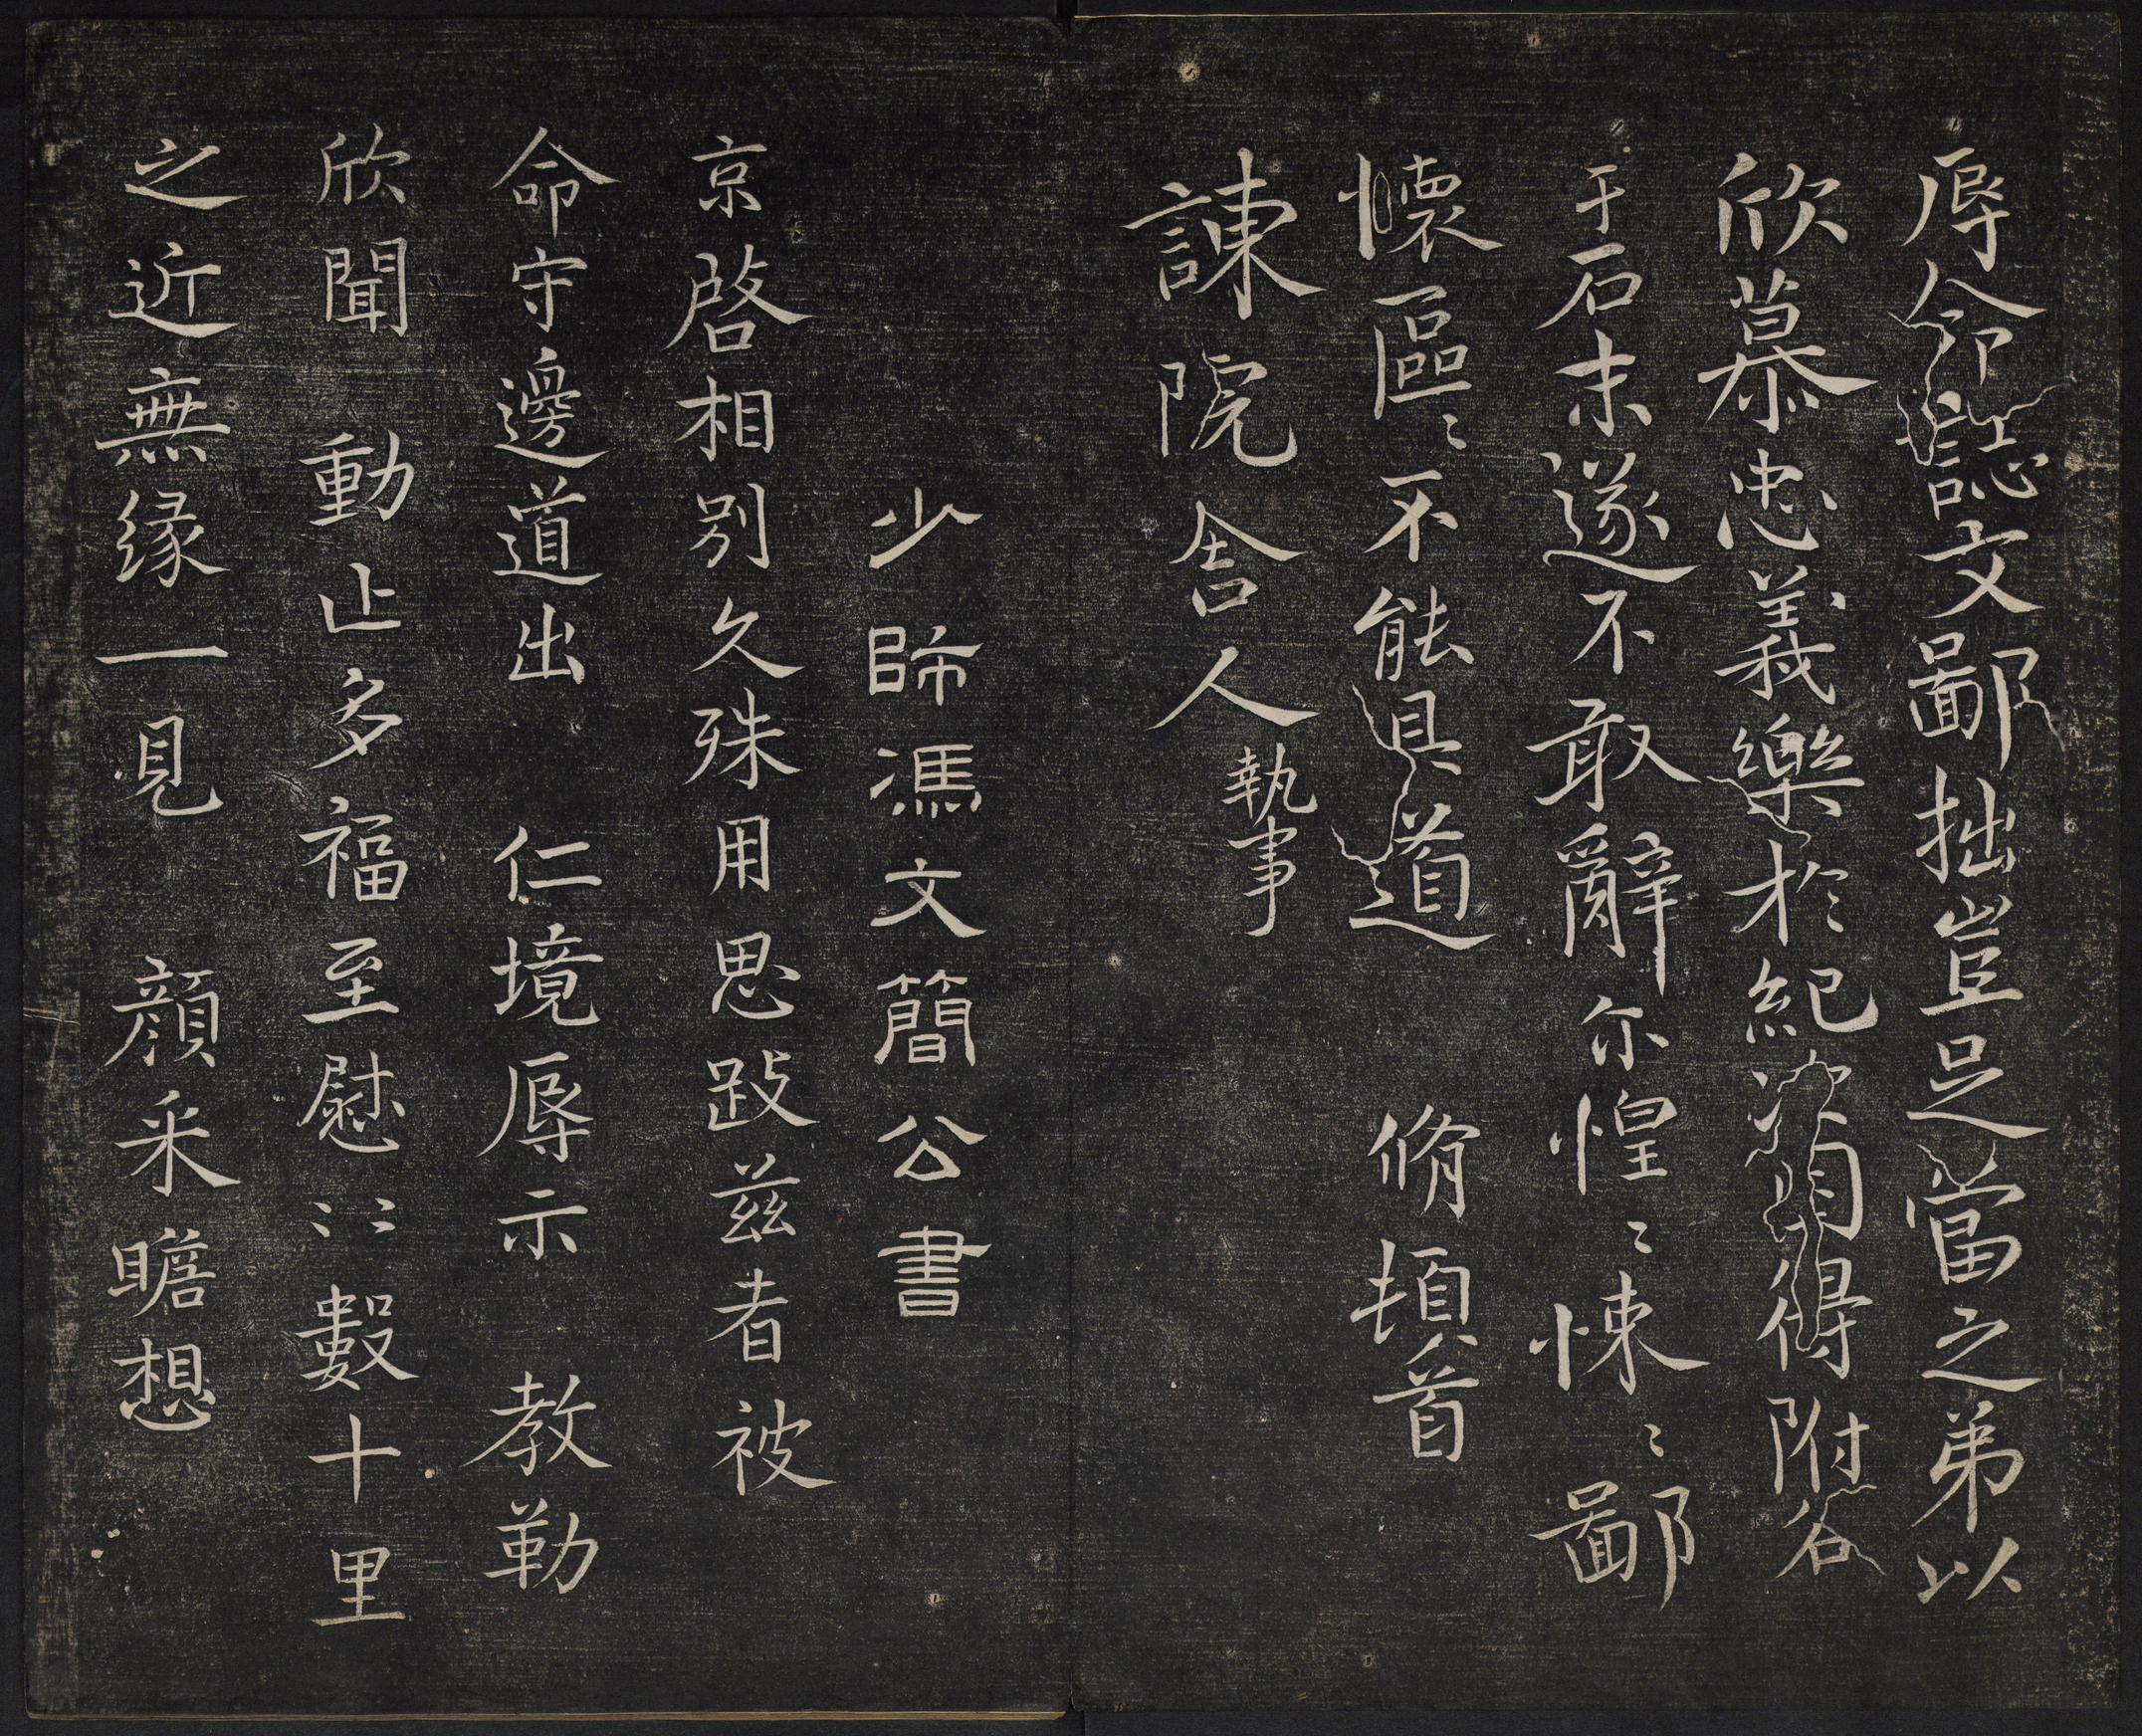 辱命誌文鄙拙豈足當之弟以
欣慕忠義樂於紀次有得附名
于石末遂不敢辭尔惶〻悚〻鄙
懷區〻不能具道 脩頓首
諫院舍人執事
少師馮文簡公書
京啓相別久殊用思跂茲者被
命守邊道出 仁境辱示 教勤
欣聞 動止多福至慰〻〻數十里
之近無緣一見 顏采瞻想